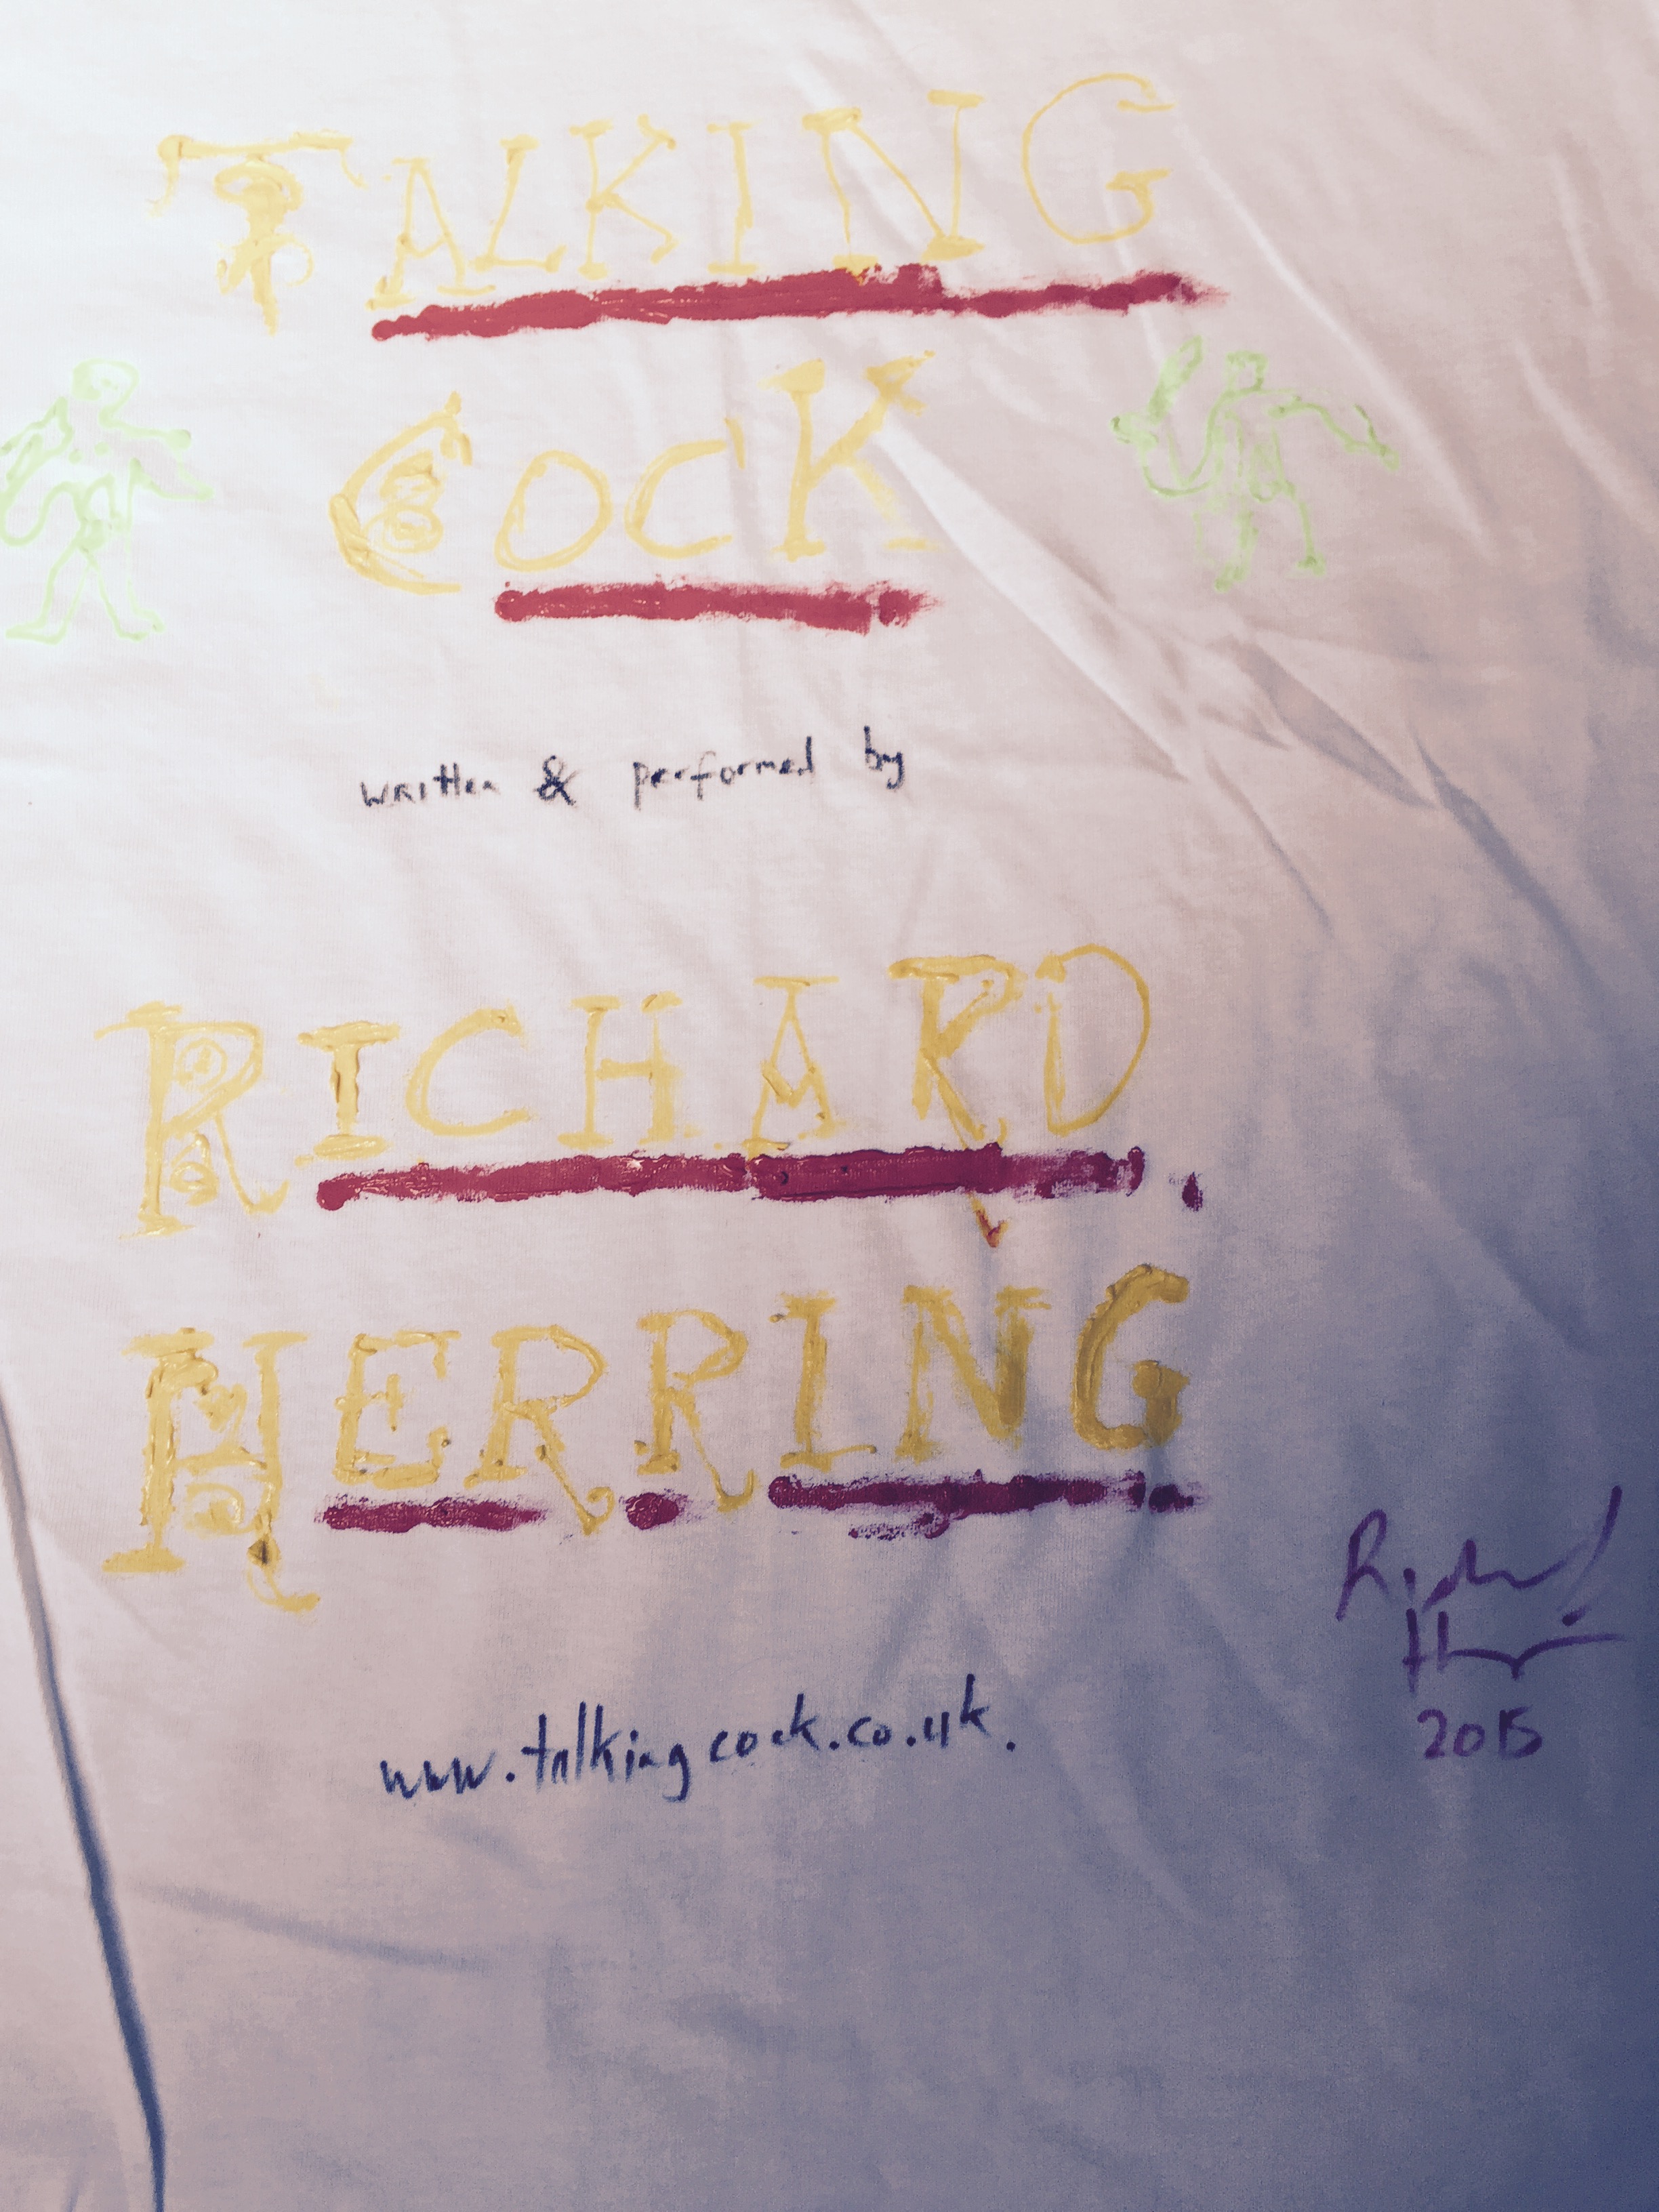 TALKING
COCK
written & performed by
RICHARD
HERRING
www.talkingcock.co.uk.
Richard
Herring
2015